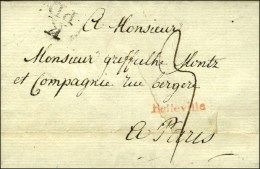 A Monsieur
Monsieur greffulhe Montz
et Compagnie rue bergere
Belleville
A Paris